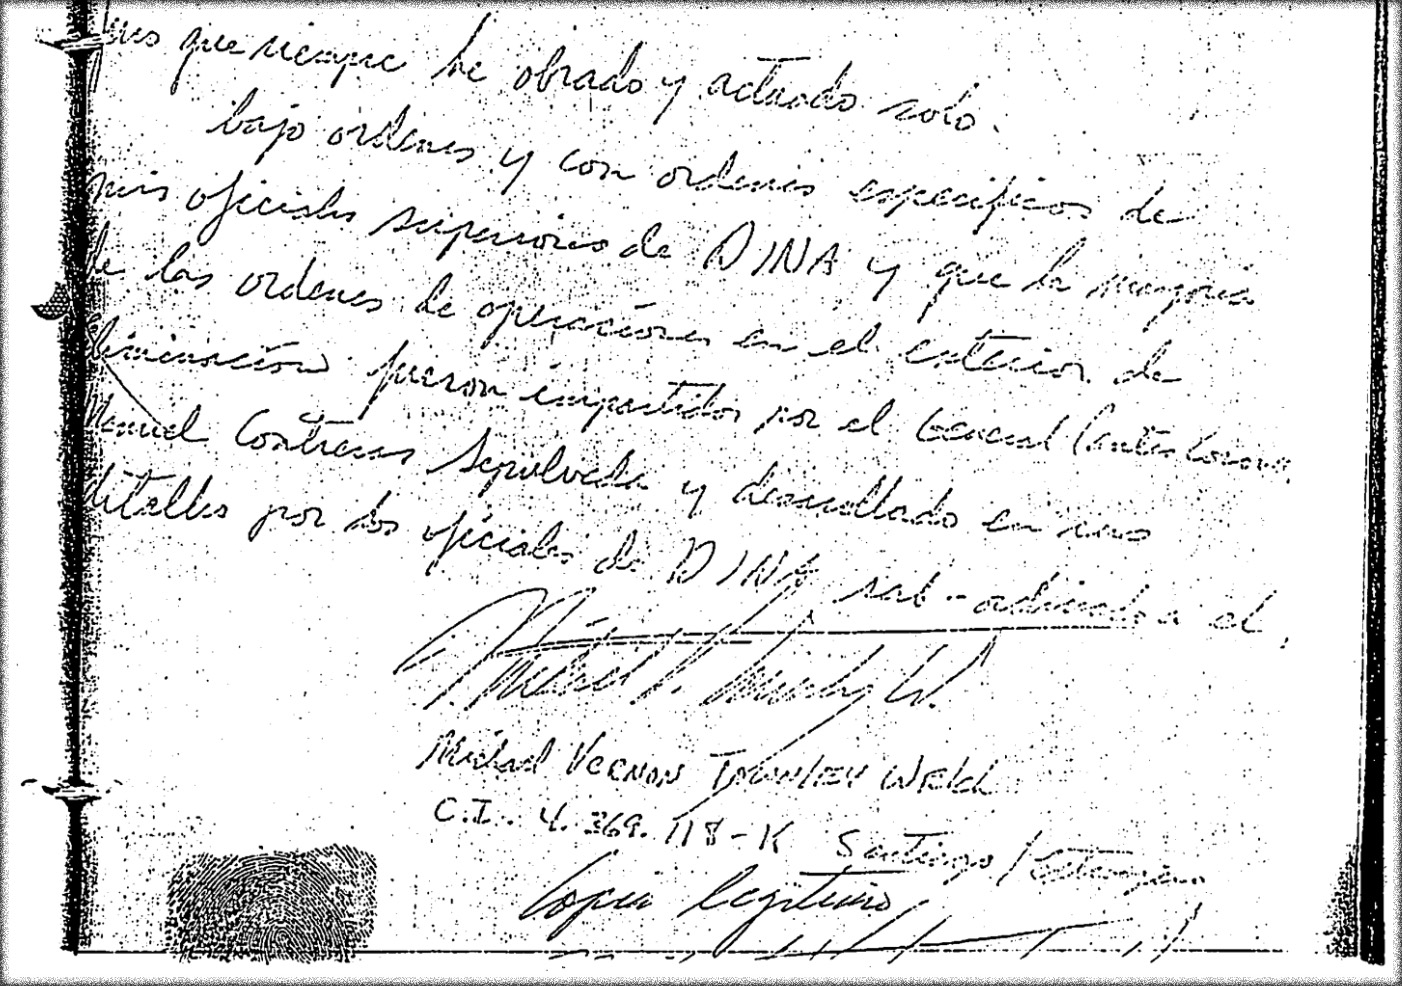 que siempre he obrado y actuado solo.
bajo ordenes y con ordenes especificos de
mis oficiales superiores de DINA y que la mayoria
de las ordenes de operaciones en el exterior de
eliminación fueron impartidos por el General (antes Coronel)
Manuel Contreras Sepulveda y desarollado en sus
detalles por los oficiales de DINA sub-ordinados a el.
Michael Vernon Townley Welch
C.I. 4.369.118-K Santiago / Extranjero
Copia legitimo